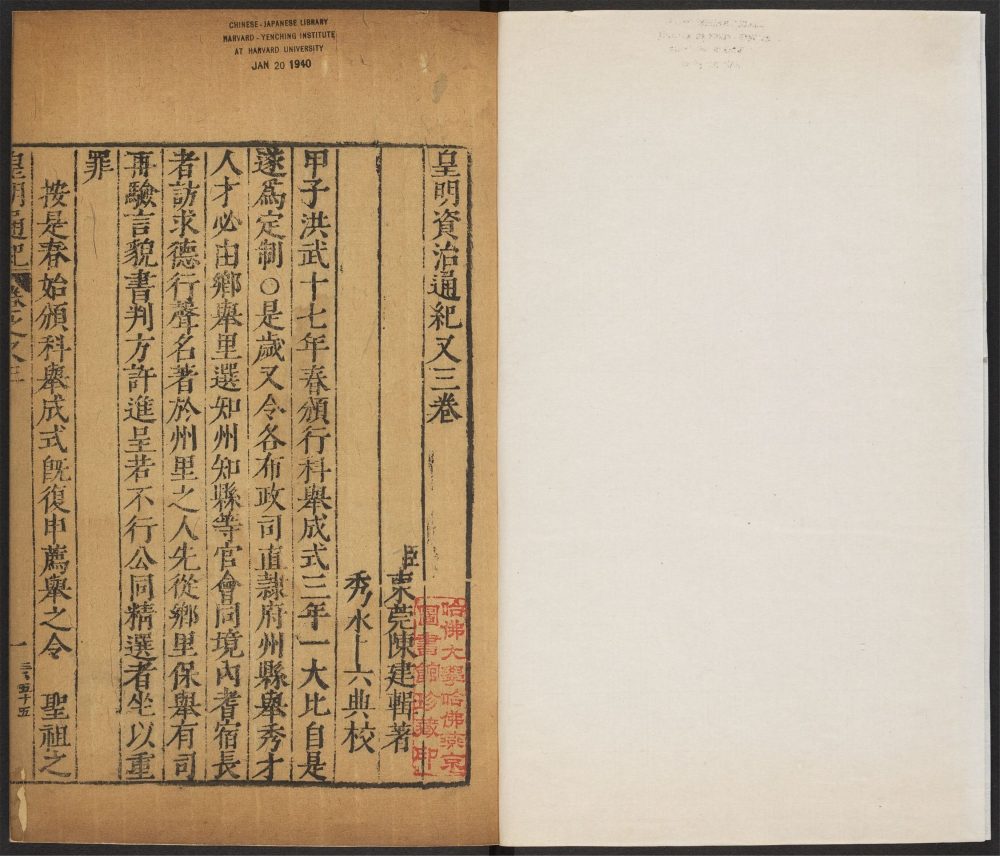 CHINESE-JAPANESE LIBRARY
HARVARD-YENCHING INSTITUTE
AT HARVARD UNIVERSITY
JAN 20 1940
皇明資治通紀又三卷
臣東莞陳建輯著
秀水卜六典校
哈佛大學哈佛燕京
圖書館珍藏印
甲子洪武十七年春頒行科舉成式三年一大比自是
遂爲定制○是歲又令各布政司直隷府州縣舉秀才
人才必由鄉舉里選知州知縣等官會同境內耆宿長
者訪求德行聲名著於州里之人先從鄉里保舉有司
再驗言貌書判方許進呈若不行公同精選者坐以重
罪
按是春始頒科舉成式旣復申薦舉之令 聖祖之
皇明通紀 卷之又三
一